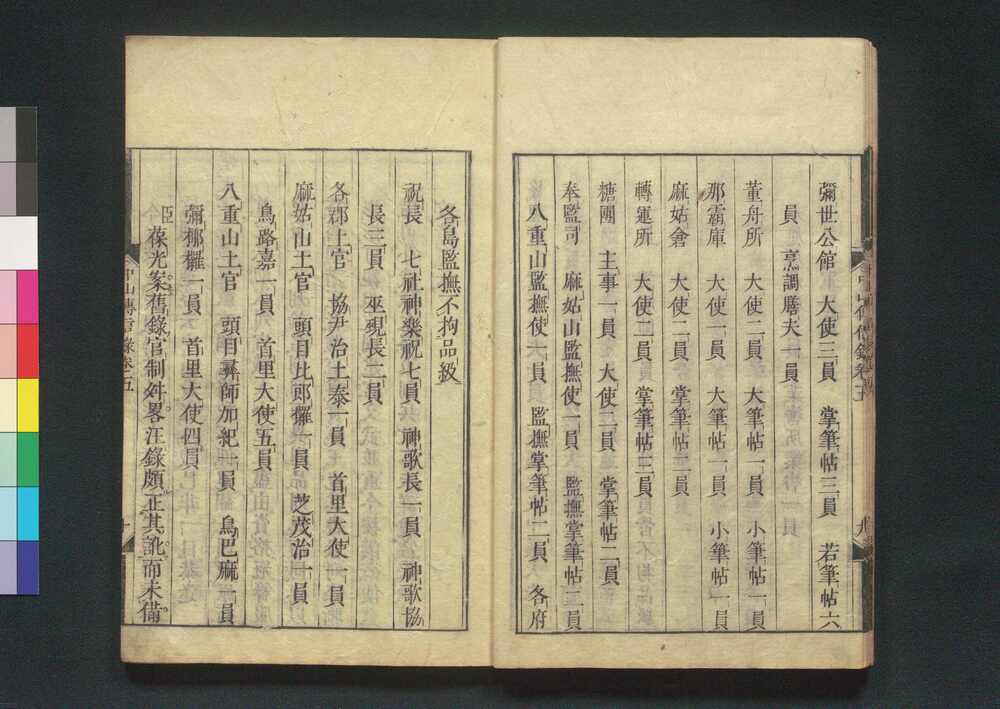 彌世公館　大使三員　掌筆帖三員　若筆帖六
員　烹調膳夫一員
董舟所　大使二員　大筆帖一員　小筆帖一員
那霸庫　大使一員　大筆帖一員　小筆帖一員
麻姑倉　大使二員　掌筆帖二員
轉運所　大使二員　掌筆帖三員
糖團　主事一員　大使二員　掌筆帖二員
奉監司　麻姑山監撫使一員　監撫掌筆帖二員
八重山監撫使一員　監撫掌筆帖二員　各府
各島監撫不拘品級
祝長　七社神樂祝七員　神歌長一員　神歌協
長三員　巫覡長二員
各郡土官　協尹治土泰一員　首里大使一員
麻姑山土官　頭目比郎𥜥一員　芝茂治一員
鳥路嘉一員　首里大使五員
八重山土官　頭目彛師加紀一員　鳥巴麻一員
彌𥜥一員　首里大使四員
臣葆光案舊錄官制舛畧汪錄頗正其訛而未備
中山傳信錄卷五